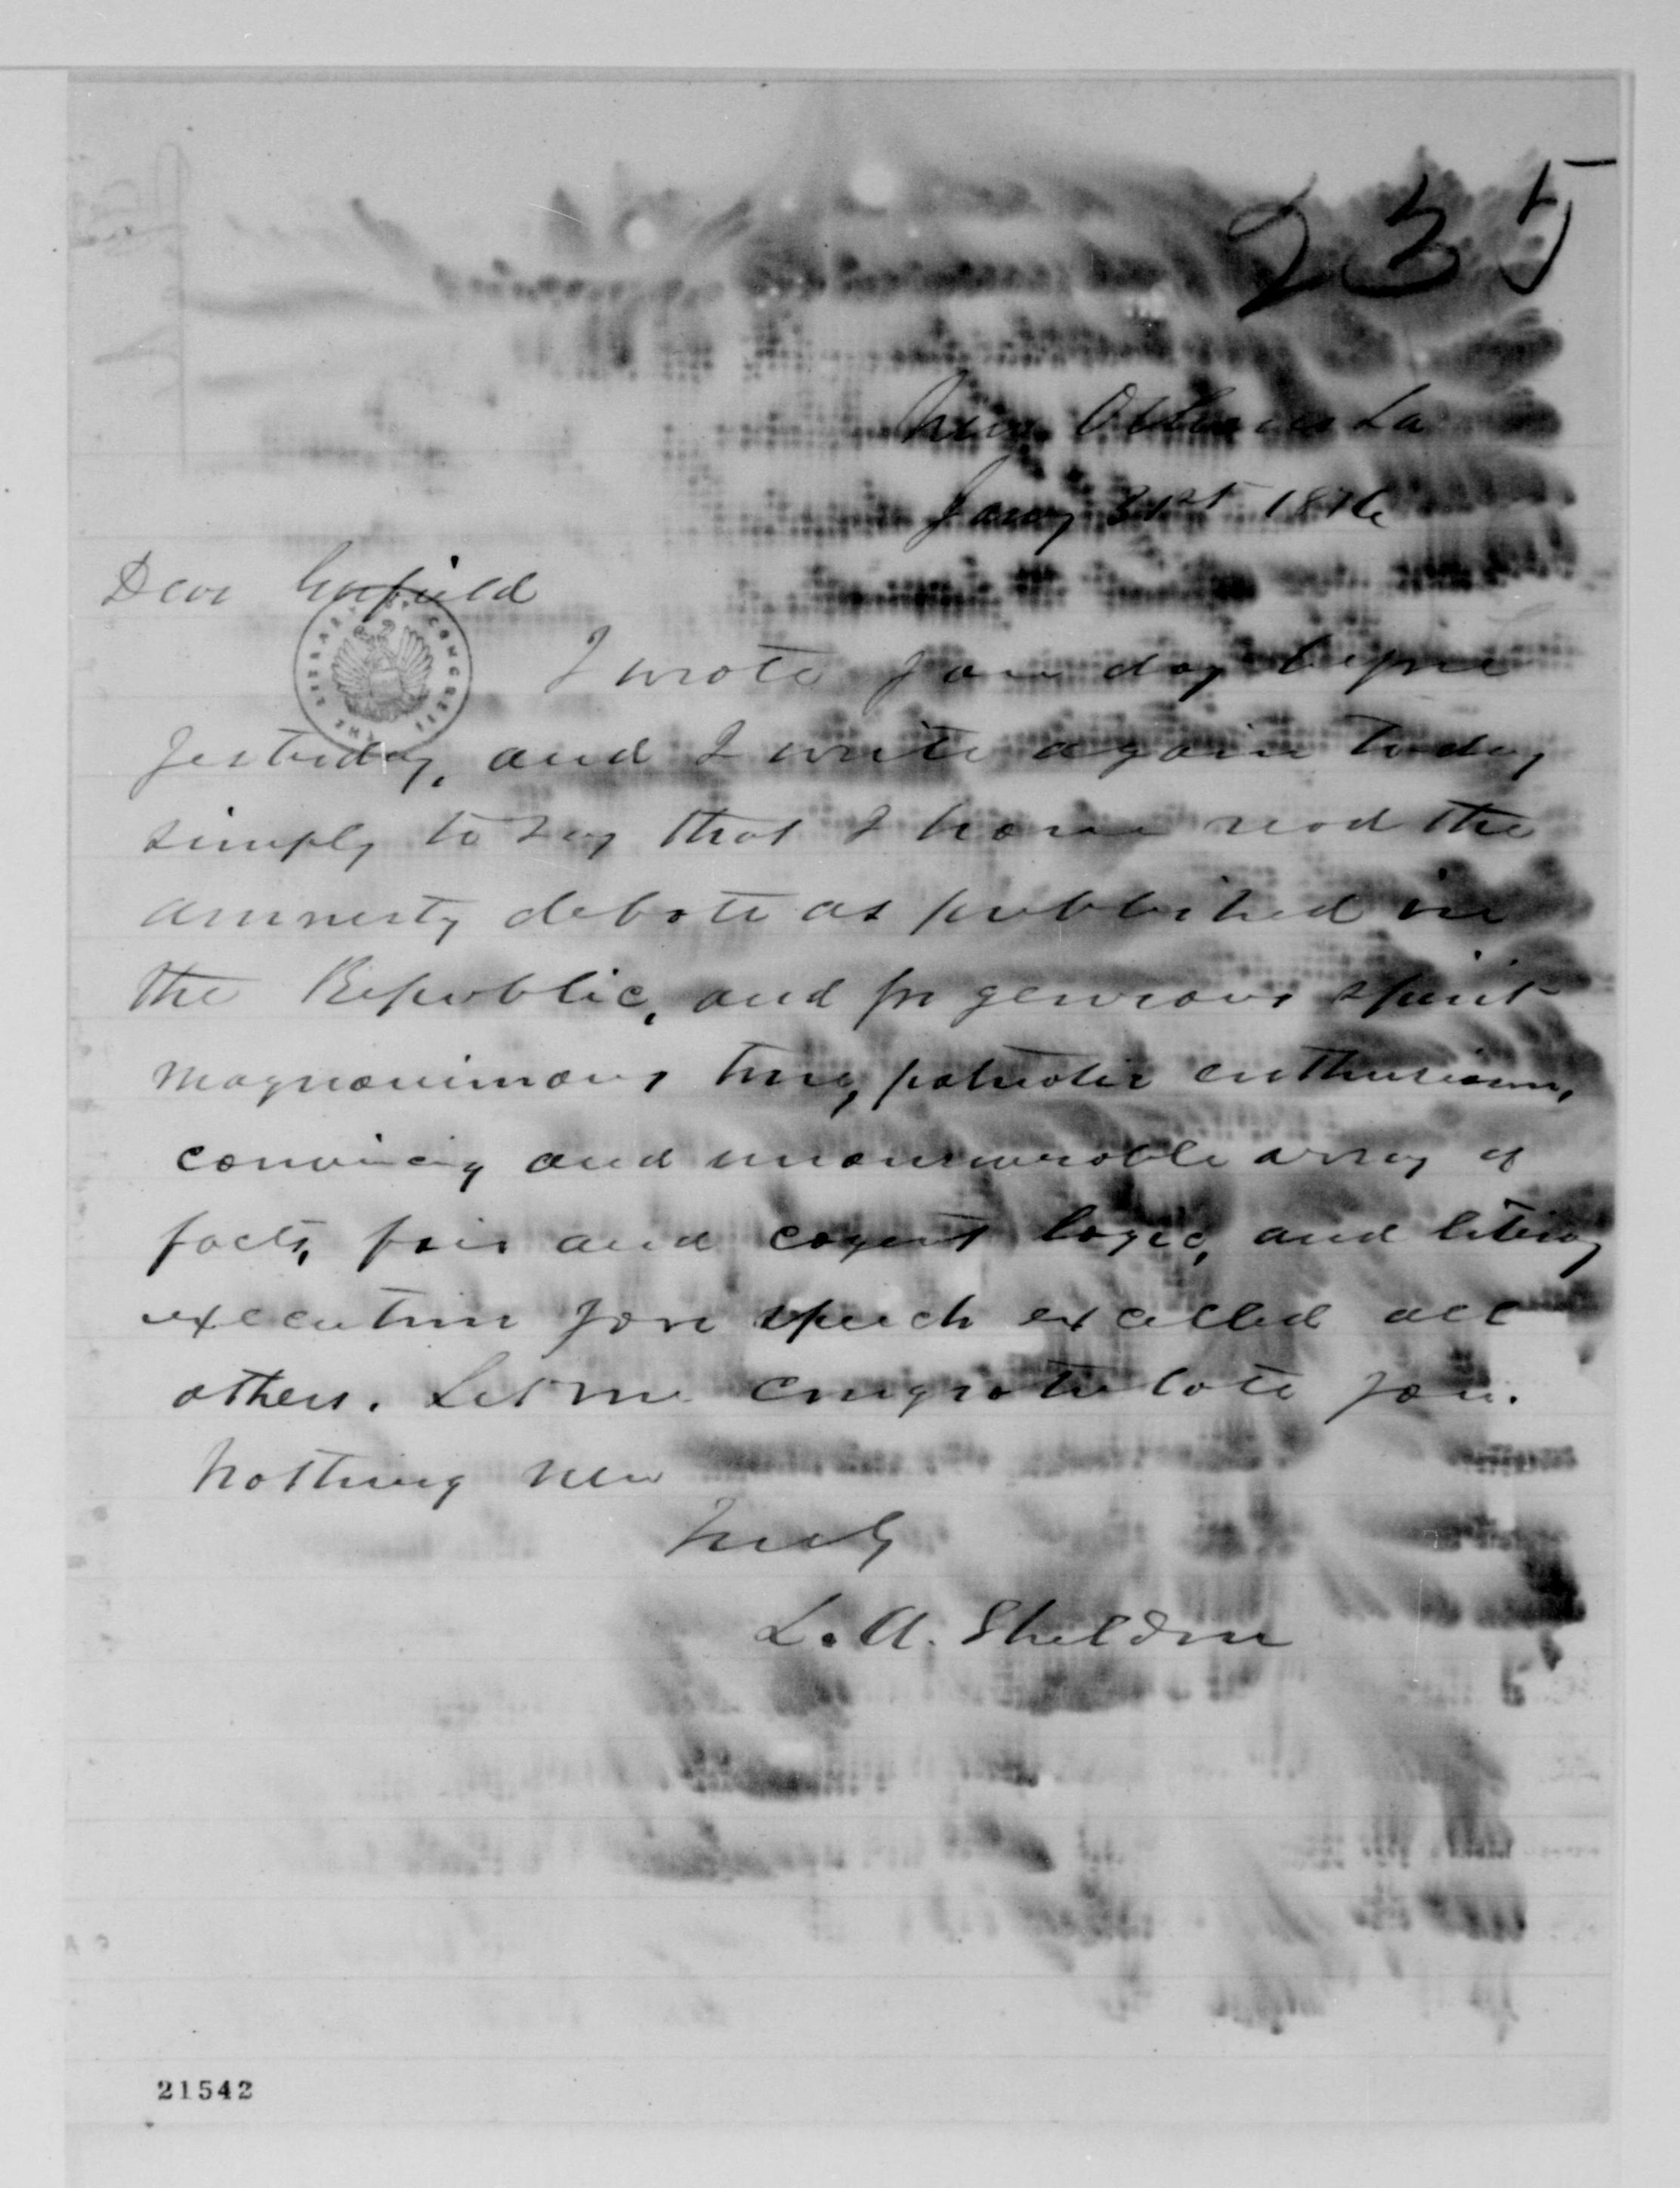 235
New Orleans La
Jany 31st 1876
Dear Garfield
THE LIBRARY OF CONGRESS
I wrote you day before
yesterday, and I write again today
simply to say that I have read the
amnesty debate as published in
the Republic, and for generous spirit
magnanimous tone, patriotic enthusiasm,
convincing and unanswerable array of
facts, fair and cogent logic, and literary
execution your speech excelled all
others. Let me congratulate you.
Nothing new
Truly
L. A. Sheldon
21542